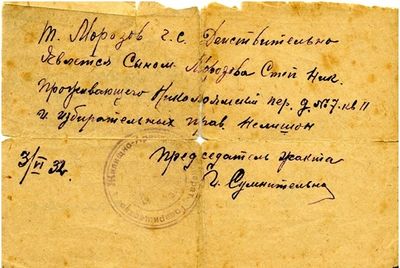 Т. Морозов Г.С. Действительно
является Сыном Морозова Степ Ник.
Проживающего Николоямский пер. д №7 кв 11
и избирательных прав нелишон
3/VI 32г.
Председатель жакта
Жилищно-
Товарищество